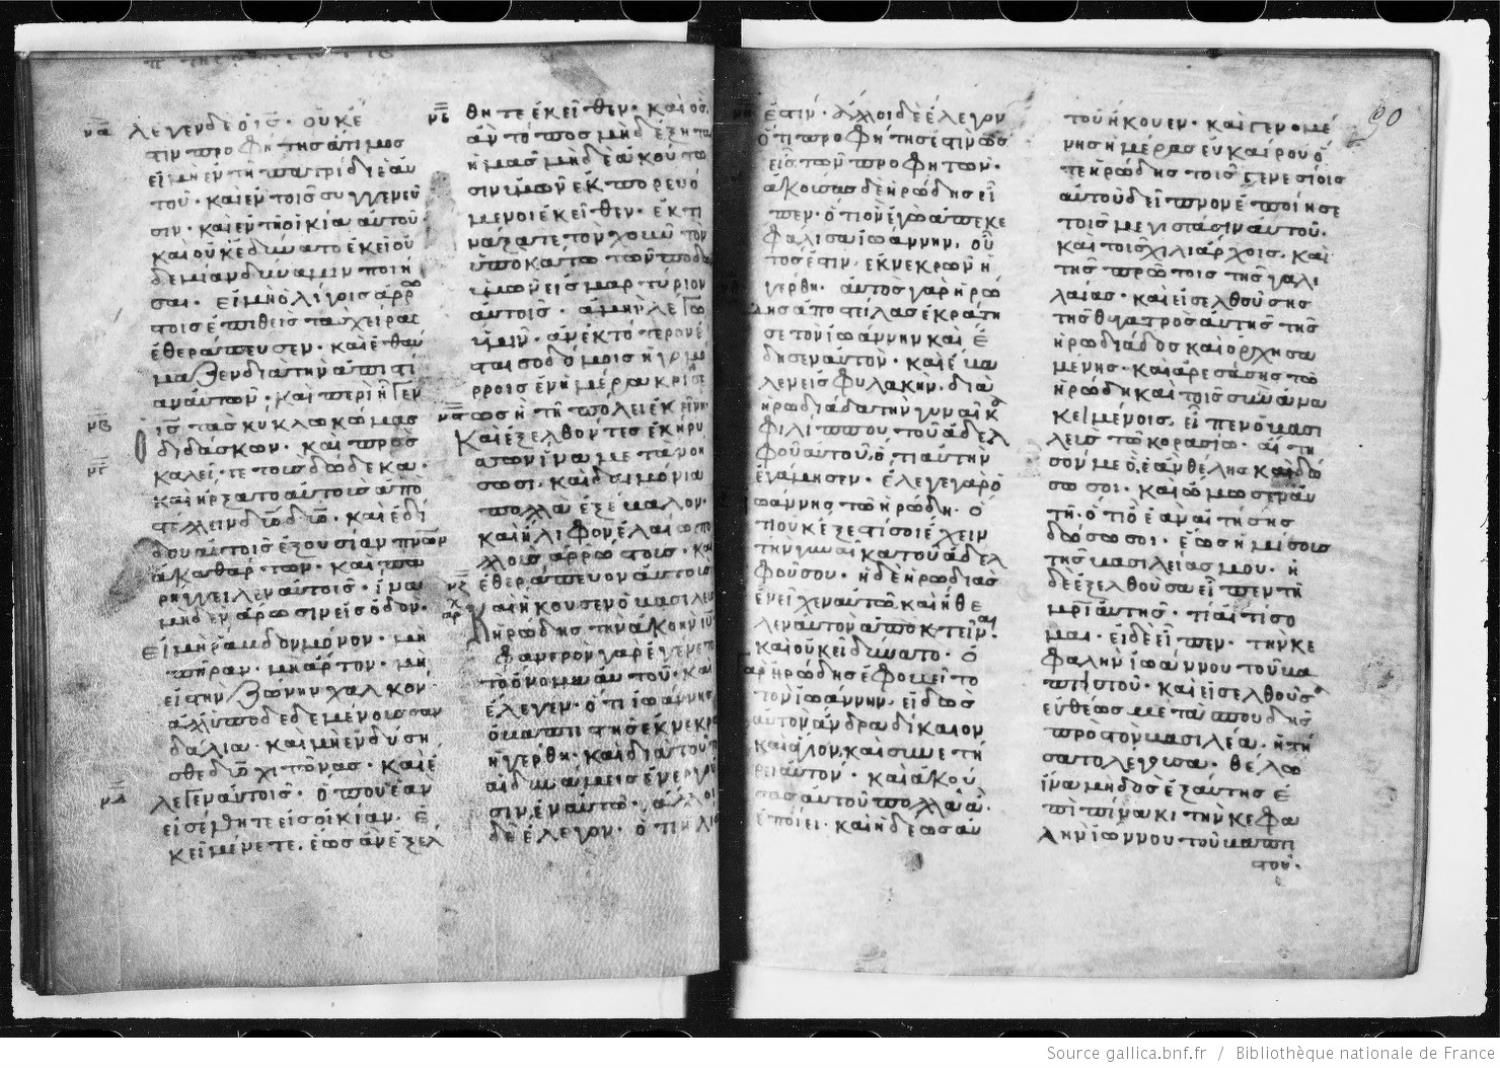 να
λέγεν δὲ ὁ ις· οὐκ ἔ
στιν προφήτης ἄτιμος
εἰ μὴ ἐν τῆ πατρίδι ἑαυ
τοῦ· καὶ ἐν τοῖς συγγενεῦ
σιν· καὶ ἐν τῆ οἰκία αὐτοῦ·
καὶ οὐκ ἐδύνατο ἐκεῖ οὐ
δεμίαν δύναμιν ποιῆ
σαι· εἰ μὴ ὀλίγοις ἀρρω
στοις ἐπιθεὶς τὰς χεῖρας
ἐθεράπευσεν· καὶ ἐθαύ
μαζεν διὰ τὴν ἀπιστί
αν αὐτῶν· καὶ περιῆγεν
νβ
ις τὰς κύκλω κώμας
διδάσκων· καὶ προσ
νγ
καλεῖτε τοὺς δώδεκα·
καὶ ἤρξατο αὐτοὺς ἀπο
στέλλειν δύο δύο· καὶ ἐδί
δου αὐτοῖς ἐξουσίαν πνων
ἀκαθάρτων· καὶ πα
ρήγγειλεν αὐτοῖς· ἵνα
μηδὲν ἄρωσιν εἰς ὁδόν·
εἰ μὴ ῥάβδον μόνον· μὴ
πήραν· μὴ ἄρτον· μὴ
εἰς τὴν ζώνην χαλκόν·
ἀλλ' ὑποδεδεμένους σαν
δάλια· καὶ μὴ ἐνδύση
σθε δύο χιτῶνας· καὶ ἔ
νδ
λεγεν αὐτοῖς· ὅπου ἐὰν
εἰσέλθητε εἰς οἰκίαν· ἐ
κεῖ μένετε· ἕως ἂν ἐξέλ
νε
θητε ἐκεῖθεν· καὶ ὃς
ἂν τόπος μὴ δέξηται
ἡμᾶς μηδὲ ἀκούσω
σιν ὑμῶν ἐκπορευό
μενοι ἐκεῖθεν· ἐκτι
νάξατε τὸν χοῦν τὸν
ὑποκάτω τῶν ποδῶ
ὑμῶν εἰς μαρτύριον
αὐτοῖς· ἀμὴν λέγω
ὑμῖν· ἀνεκτότερον ἔ
σται σοδόμοις ἢ γομό
ρροις ἐν ἡμέρα κρίσε
ως ἢ τῆ πόλει ἐκείνη·
Καὶ ἐξελθόντες ἐκήρυ
σσον ἵνα μετανοή
σωσι· καὶ δαιμόνια
πολλὰ ἐξέβαλον·
καὶ ἤλιφον ἐλαίω πο
λλοὺς ἀρρώστους· καὶ
ἐθεράπευον αὐτούς
νζ
Καὶ ἤκουσεν ὁ βασιλεὺ
ἡρώδης τὴν ἀκοὴν ιυ
φανερὸν γὰρ ἐγένετο
τὸ ὄνομα αὐτοῦ· καὶ
ἔλεγεν· ὅτι ἰωάννης
ὁ βαπτιστὴς ἐκ νεκρῶ
ἠγέρθη· καὶ διὰ τοῦτο
αἱ δυνάμεις ἐνεργοῦ
σιν ἐν αὐτῶ· ἄλλοι
δὲ ἔλεγον· ὅτι ἠλίας
90
ἐστίν· ἄλλοι δὲ ἔλεγον
ὅτι προφήτης ἐστὶν ὡς
εἷς τῶν προφητῶν·
ἀκούσας δὲ ἡρώδης εἶ
πεν· ὅτι ὃν ἐγὼ ἀπεκε
φάλισα ἰωάννην· οὗ
τός ἐστιν· ἐκ νεκρῶν ἠ
γέρθη· αὐτὸς γὰρ ἡρώ
δης ἀποστείλας ἐκράτη
σε τὸν ἰωάννην καὶ ἔ
δησεν αὐτόν· καὶ ἔβα
λεν εἰς φυλακήν· διὰ
ἡρωδιάδα τὴν γυναῖκα
φιλίππου τοῦ ἀδελ
φοῦ αὐτοῦ, ὅτι αὐτὴν
ἐγάμησεν· ἔλεγε γὰρ ὁ
ἰωάννης τῶ ἡρώδη· ὅ
τι οὐκ ἔξεστί σοι ἔχειν
τὴν γυναῖκα τοῦ ἀδελ
φοῦ σου· ἡ δὲ ἡρωδιὰς
ἐνεῖχεν αὐτῶ, καὶ ἤθε
λεν αὐτὸν ἀποκτεῖναι·
καὶ οὐκ εἰδύνατο· ὁ
γὰρ ἡρώδης ἐφοβεῖτο
τὸν ἰωάννην, εἰδὼς
αὐτὸν ἄνδρα δίκαιον
καὶ ἅγιον, καὶ συνετή
ρει αὐτόν· καὶ ἀκού
σας αὐτοῦ πολλὰ ἃ
ἐποίει· καὶ ἡδέως αὐ
τοῦ ἤκουεν· καὶ γενομέ
νης ἡμέρας εὐκαίρου ὅ
τε ἡρώδης τοῖς γενεσίοις
αὐτοῦ δεῖπνον ἐποίησε
τοῖς μεγιστᾶσιν αὐτοῦ·
καὶ τοῖς χιλιάρχοις· καὶ
τῆς πρώτοις τῆς γαλι
λαίας· καὶ εἰσελθούσης
τῆς θυγατρὸς αὐτῆς τῆς
ἡρωδιάδος καὶ ὀρχησα
μένης· καὶ ἀρεσάσης τῶ
ἡρώδη καὶ τοῖς συνανα
κειμένοις, εἶπεν ὁ βασι
λεὺς τῶ κορασίω· αἴτη
σόν με ὃ ἐὰν θέλης καὶ δώ
σω σοι· καὶ ὤμωσεν αὐ
τῆ· ὅτι ὃ ἐὰν αἰτήσης
δώσω σοι· ἕως ἡμίσους
τῆς βασιλείας μου· ἡ
δὲ ἐξελθοῦσα εἶπεν τῆ
μρι αὐτῆς· τί αἰτήσο
μαι· ἡ δὲ εἶπεν· τὴν κε
φαλὴν ἰωάννου τοῦ βα
πτιστοῦ· καὶ εἰσελθοῦσα
εὐθέως μετὰ σπουδῆς
πρὸς τὸν βασιλέα· ἠτή
σατο λέγουσα· θέλω
ἵνα μοι δὸς ἐξαυτῆς ἐ
πὶ πίνακι τὴν κεφα
λὴν ἰωάννου τοῦ βαπτι
στοῦ·
Source gallica.bnf.fr / Bibliothèque nationale de France